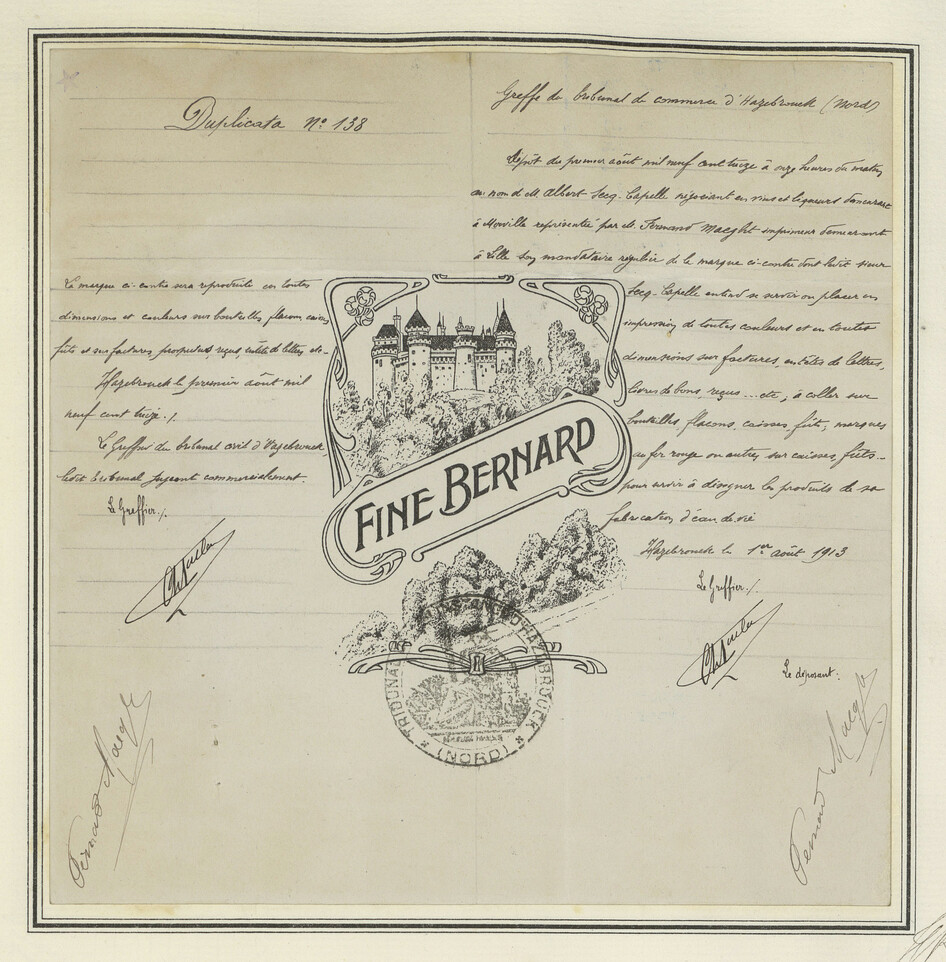 Duplicata N° 138
La marque ci-contre sera reproduite en toutes
dimensions et couleurs sur bouteilles, flacons, caisses
fûts et sur factures prospectus reçus entête de lettres etc-
Hazebrouck le premier août mil
neuf cent treize ./.
Le Greffier du tribunal civil d'Hazebrouck
ledit tribunal jugeant commercialement.
Le Greffier ./.
Greffe du tribunal de commerce d'Hazebrouck (Nord)
Dépôt du premier août mil neuf cent treize à onze heures du matin,
au nom de M. Albert Secq-Capelle négociant en vins et liqueurs demeurant
à Merville représentée par M. Fernand Maeght imprimeur demeurant
à Lille son mandataire régulier de la marque ci-contre dont ledit sieur
Secq-Capelle entend se servir ou placer en
impression de toutes couleurs et en toutes
dimensions sur factures, en têtes de lettres,
livres de bons, reçus ... etc, à coller sur
bouteilles, flacons, caisses, fûts, marques
au fer rouge ou autres sur caisses, fûts-
pour servir à désigner les produits de sa
fabrication d'eau de vie
Hazebrouck le 1er août 1913
Le Greffier ./.
Le déposant:
FINE BERNARD
HAZEBROUCK
(NORD)
Fernand Maeght
Fernand Maeght